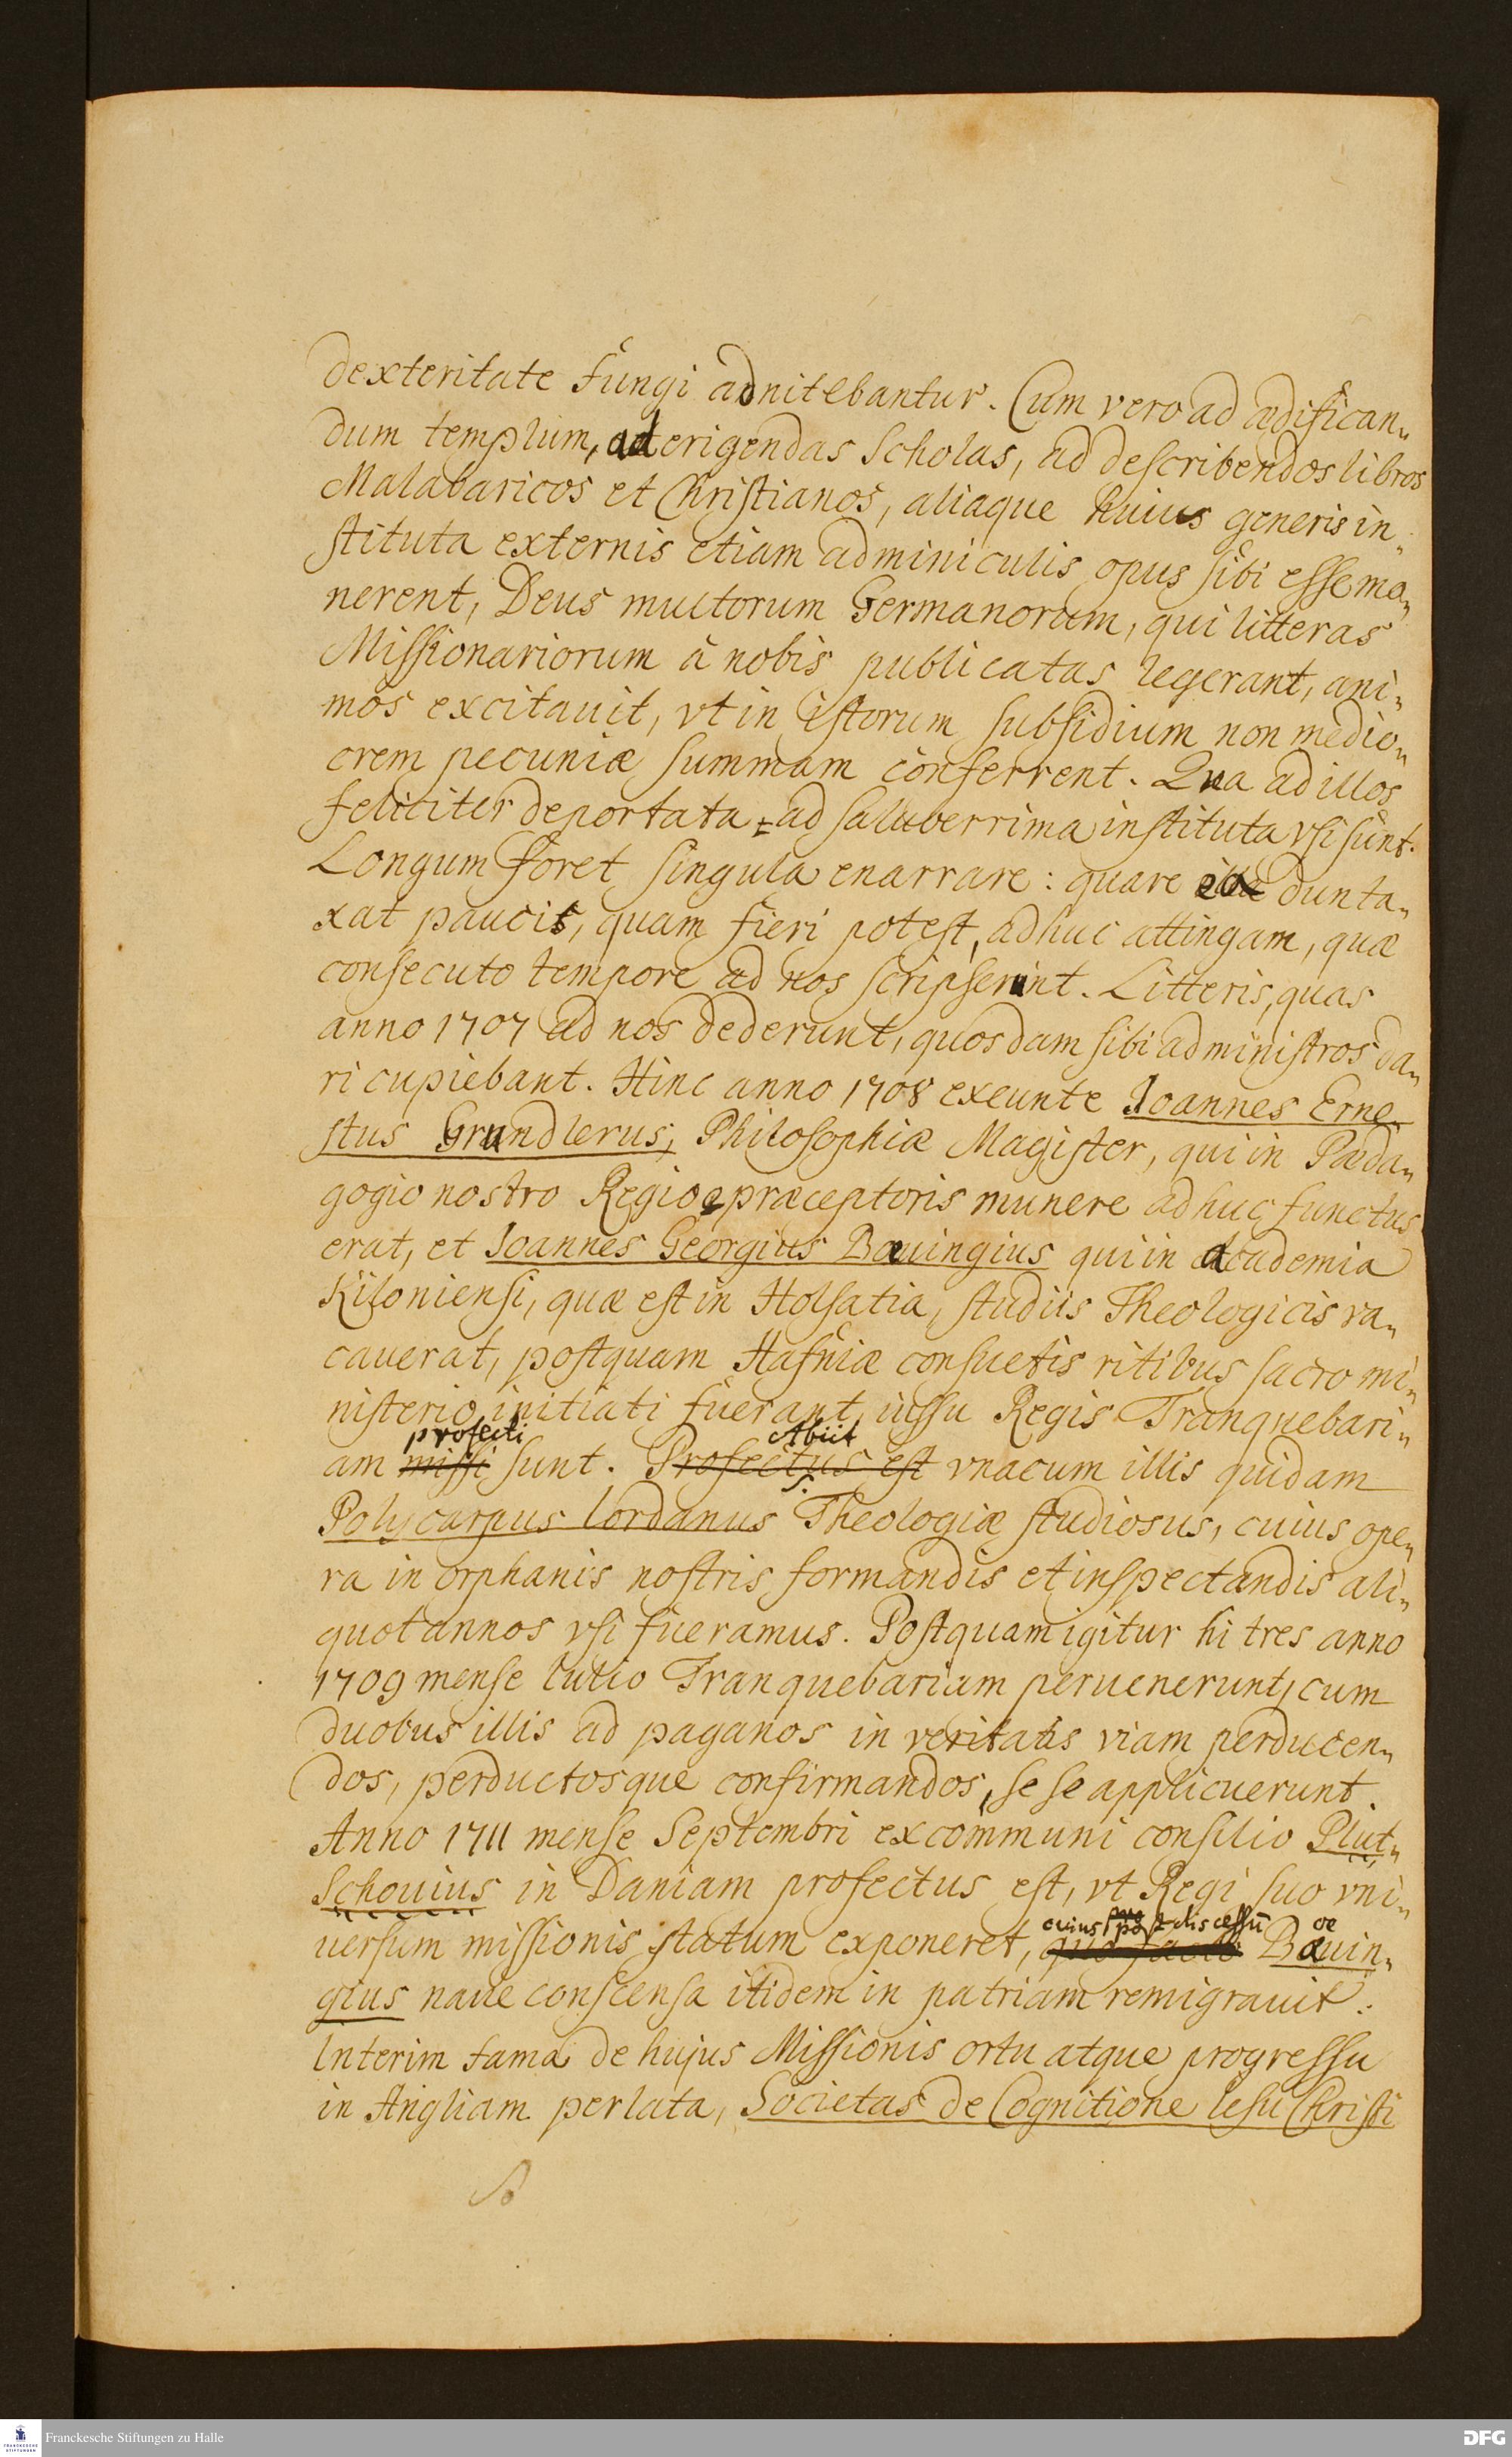 dexteritate fungi adnitebantur. Cum vero ad ædifican„
dum templum, ad erigendas Scholas, ad describendos libros
Malabaricos et Christianos, aliaque huius generis in„
stituta externis etiam adminiculis opus sibi esse mo„
nerent, Deus multorum Germanorum, qui litteras
Missionariorum à nobis publicatas legerant, ani„
mos excitauit, vt in istorum subsidium non medio„
crem pecuniæ summam conferrent. Qua ad illos
feliciter deportata, ad saluberrima instituta vsi sunt.
Longum foret singula enarrare: quare ea dunta„
xat paucis, quam fieri potest, adhuc attingam, quæ
consecuto tempore ad nos scripserint. Litteris, quas
anno 1707 ad nos dederunt, quosdam sibi administros da„
ri cupiebant. Hinc anno 1708 exeunte Ioannes Erne„
stus Grundlerus, Philosophiæ Magister, qui in Pæda„
gogio nostro Regio præceptoris munere adhuc functus
erat, et Ioannes Georgius Bœuingius qui in academia
Kiloniensi, quæ est in Holsatia, studiis Theologicis va„
cauerat, postquam Hafniæ consuetis ritibus sacro mi„
nisterio initiati fuerant, iussu Regis Tranquebari„
profecti Abiit
am missi sunt. Profectus est vnacum illis quidam
Polycarpus Iordanus S. Theologiæ studiosus, cuius ope„
ra in orphanis nostris formandis et inspectandis ali„
quot annos vsi fueramus. Postquam igitur hi tres anno
1709 mense Iulio Tranquebariam peruenerunt, cum
duobus illis ad paganos in veritatis viam perducen„
dos, perductosque confirmandos, sese applicuerunt.
Anno 1711 mense Septembri ex communi consilio Plut„
Schouius in Daniam profectus est, vt Regi suo vni„
cuius post discessū œ
uersum missionis statum exponeret, quo facto Bæuin„
gius naue conscensa itidem in patriam remigrauit.
Interim fama de hujus Missionis ortu atque progressu
in Angliam perlata, Societas de Cognitione Iesu Christi
Franckesche Stiftungen zu Halle
DFG